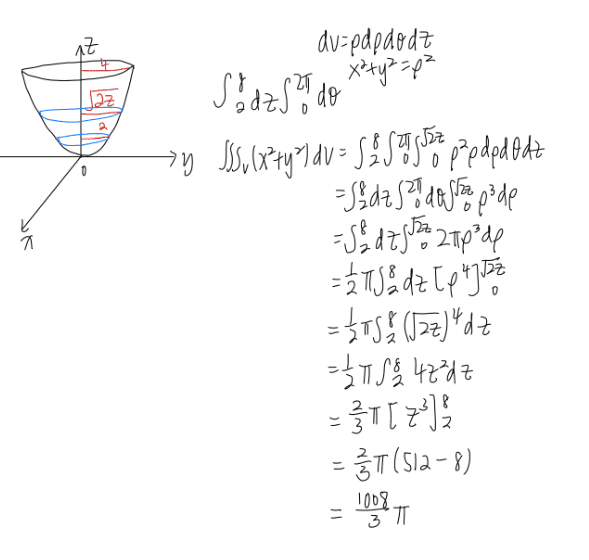 z
4
√2z
2
0
y
x
dv=ρdρdθdz
x²+y²=ρ²
∫₂⁸dz∫₀^{2π}dθ
∭ᵥ(x²+y²)dv=∫₂⁸∫₀^{2π}∫₀^{√2z} ρ²ρdρdθdz
=∫₂⁸dz∫₀^{2π}dθ∫₀^{√2z} ρ³dρ
=∫₂⁸dz∫₀^{√2z} 2πρ³dρ
=½π∫₂⁸dz[ρ⁴]₀^{√2z}
=½π∫₂⁸(√2z)⁴dz
=½π∫₂⁸ 4z²dz
=⅔π[z³]₂⁸
=⅔π(512-8)
=1008/3 π